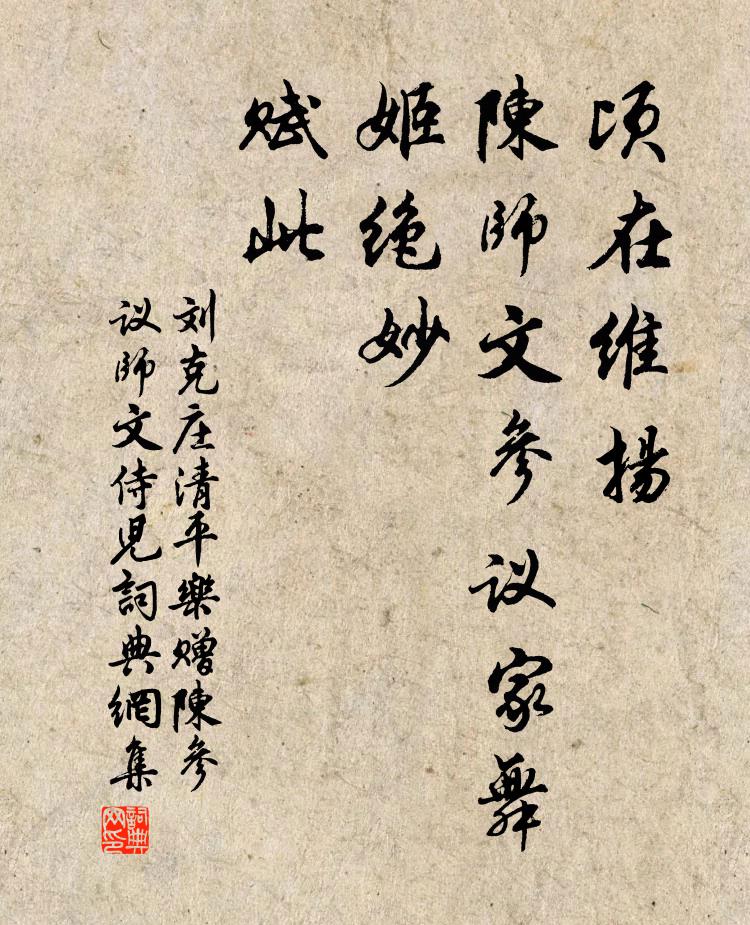 顷在维揚
陳師文參议家舞
姬绝妙
赋此
刘克庄清平樂赠陳參
议師文侍児詞典網集
詞典
网印